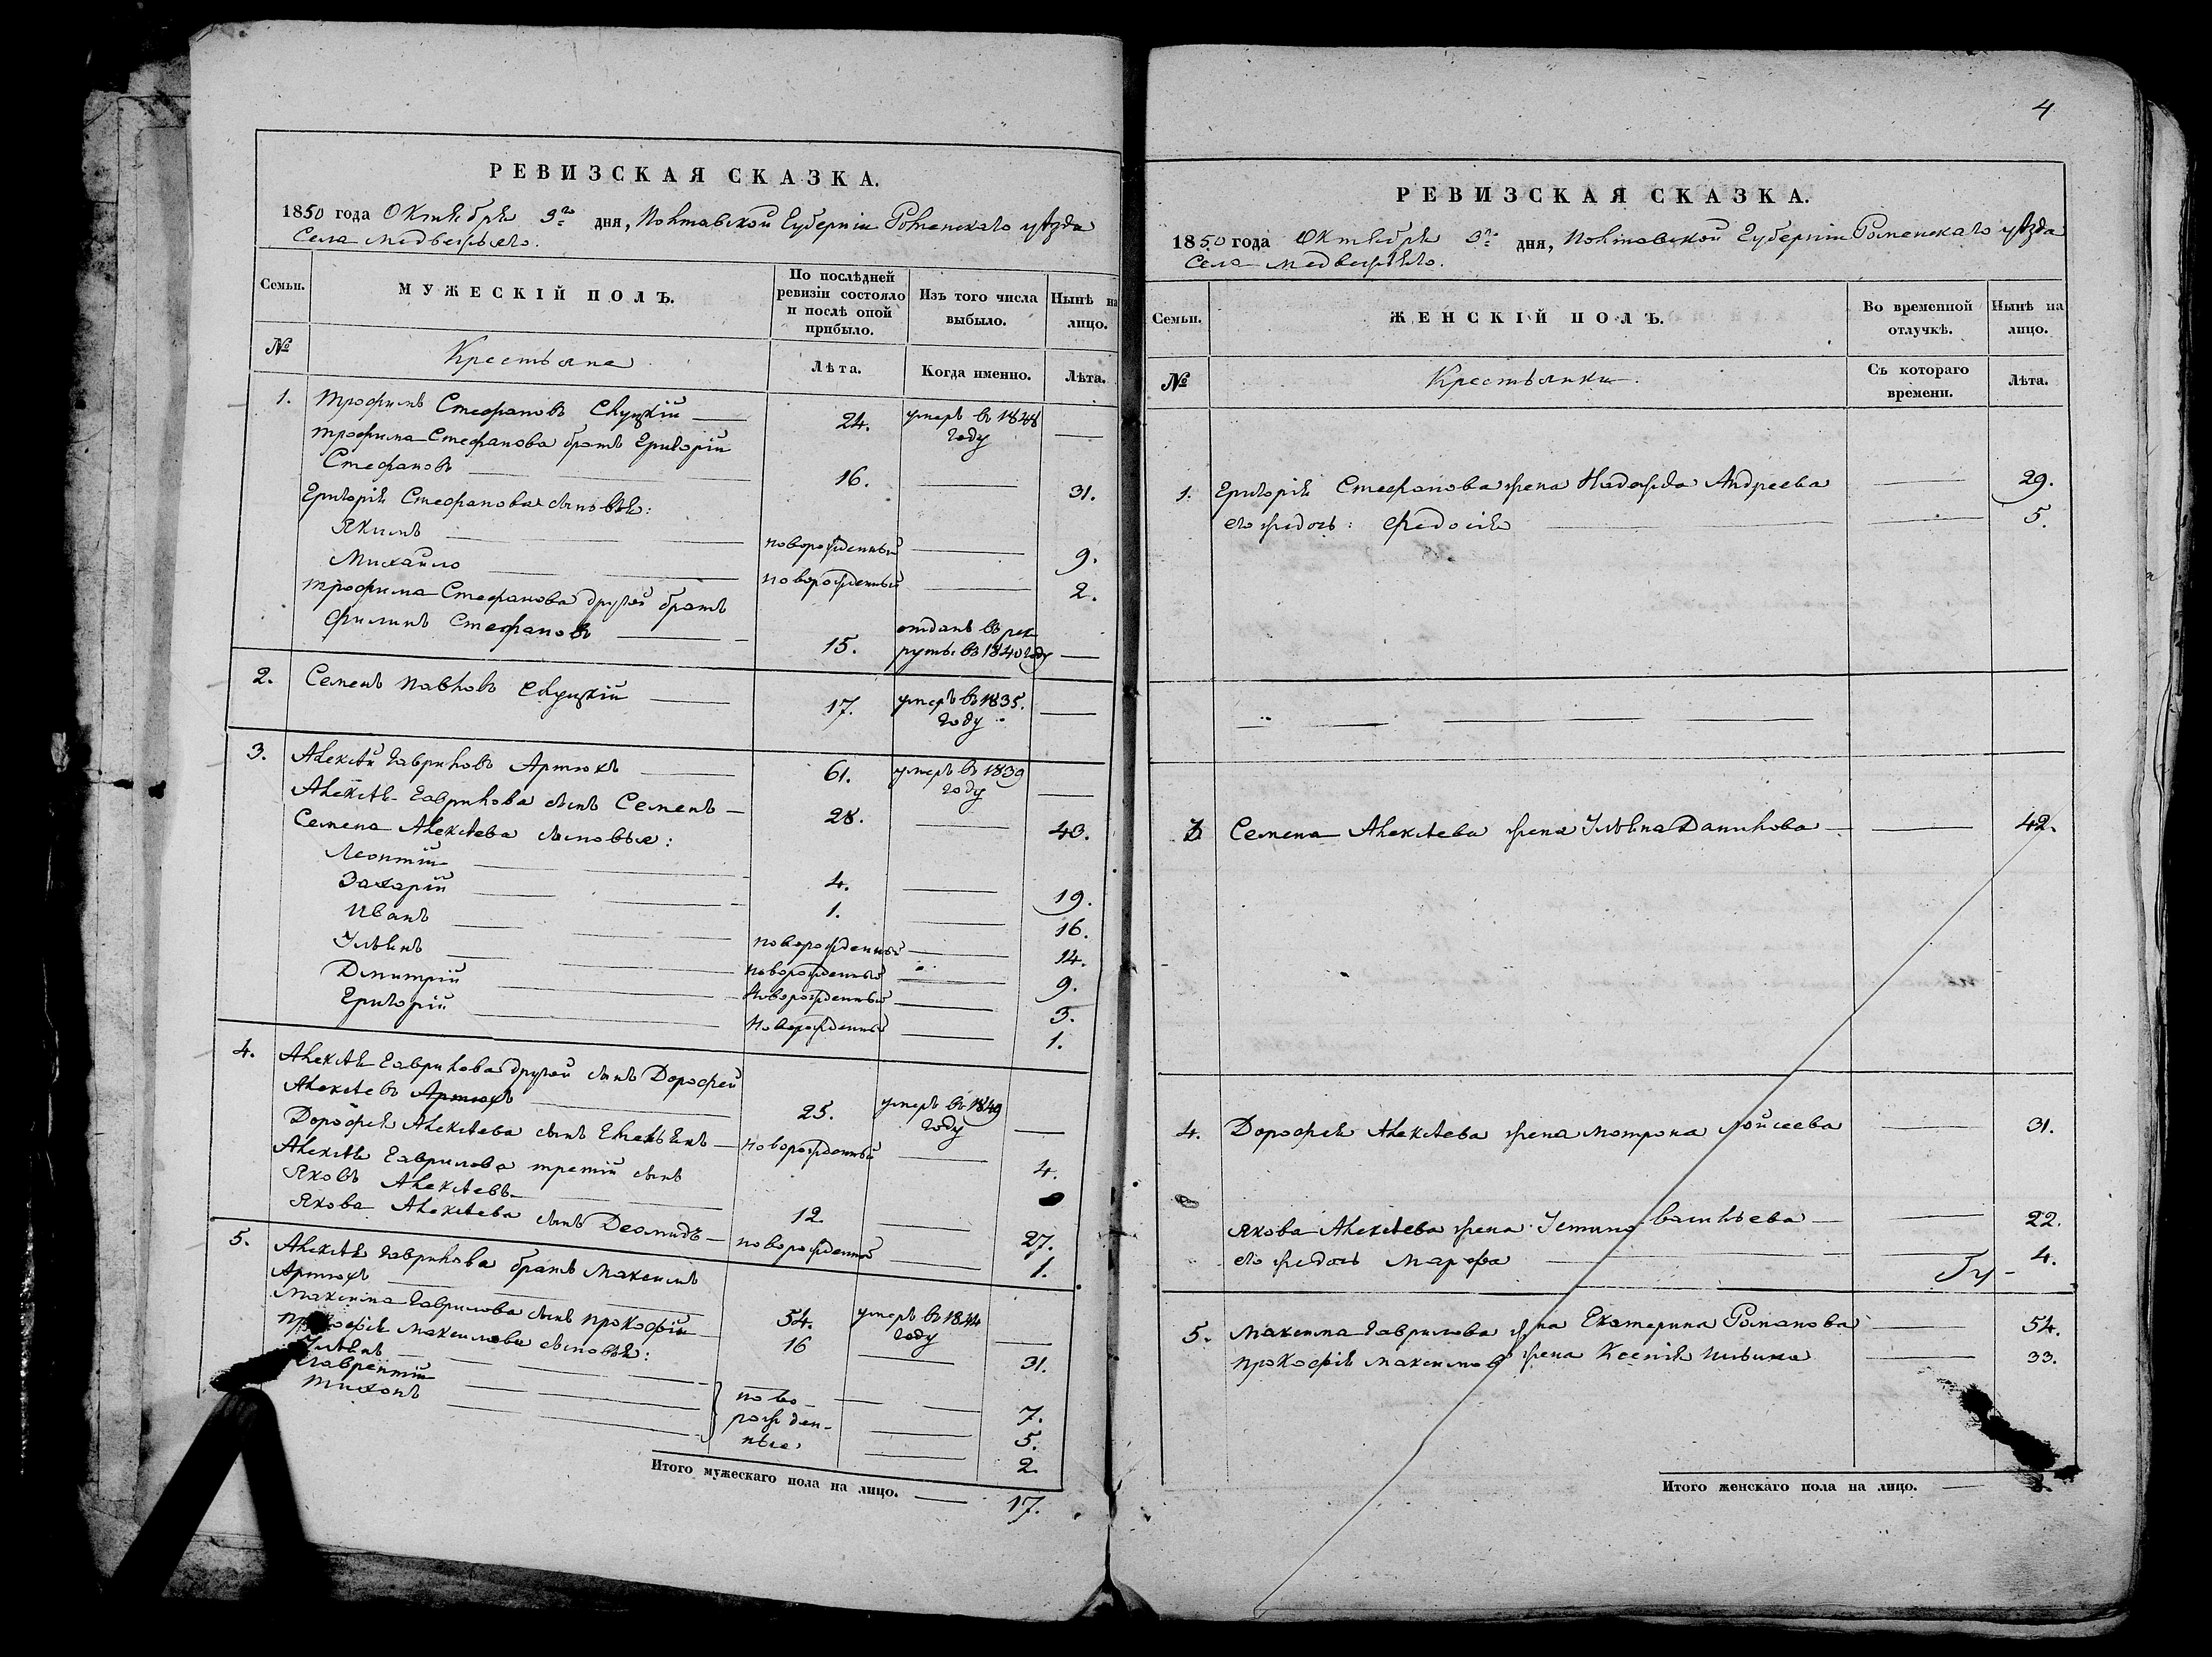 РЕВИЗСКАЯ СКАЗКА.
1850 года Октября 9го дня, Полтавской Губерніи Роменскаго уѣзда
Села Медвежьяго.
Семьи.
МУЖЕСКІЙ ПОЛЪ.
По послѣдней ревизіи состояло и послѣ оной прибыло.
Изъ того числа выбыло.
Нынѣ на лицо.
№
Крестьяне
Лѣта.
Когда именно.
Лѣта.
1. Трофимъ Стефановъ Слуцкій — 24. умеръ въ 1848 году —
Трофима Стефанова братъ Григорій
Стефановъ — 16. — 31.
Григорія Стефанова сыновья:
Якимъ — новорожденный — 9.
Михайло — новорожденный — 2.
Трофима Стефанова другой братъ
Филипъ Стефановъ — 15. отданъ въ рекруты въ 1840 году —
2. Семенъ Павловъ Слуцкій — 17. умеръ въ 1835. году —
3. Алексѣй Гавриловъ Артюхъ — 61. умеръ въ 1839 году —
Алексѣя Гаврилова сынъ Семенъ — 28. — 43.
Семена Алексѣева сыновья:
Леонтій — 4. — 19.
Захарій — 1. — 16.
Иванъ — новорожденный — 14.
Ульянъ — новорожденный — 9.
Дмитрій — новорожденный — 3.
Григорій — новорожденный — 1.
4. Алексѣя Гаврилова другой сынъ Дорофей
Алексѣевъ Артюхъ — 25. умеръ въ 1849 году —
Дорофея Алексѣева сынъ Емельянъ — новорожденный — 4.
Алексѣя Гаврилова третій сынъ
Яковъ Алексѣевъ — 12. — 27.
Якова Алексѣева сынъ Деомидъ — новорожденный — 1.
5. Алексѣя Гаврилова братъ Максимъ
Артюхъ — 54. умеръ въ 1844 году —
Максима Гаврилова сынъ Прокофій — 16 — 31.
Прокофія Максимова сыновья:
Ульянъ — 7.
Лаврентій — новорожденные — 5.
Тихонъ — 2.
Итого мужескаго пола на лицо. — 17.
4
РЕВИЗСКАЯ СКАЗКА.
1850 года Октября 9го дня, Полтавской Губерніи Роменскаго уѣзда
Села Медвежьяго.
Семьи.
ЖЕНСКІЙ ПОЛЪ.
Во временной отлучкѣ.
Нынѣ на лицо.
№
Крестьянки
Съ котораго времени.
Лѣта.
1. Григорія Стефанова жена Надежда Андреева — 29.
его жъ дочь: Федосія — 5.
3 Семена Алексѣева жена Ульяна Данилова — 42.
4. Дорофея Алексѣева жена Мотрона Мойсеева — 31.
Якова Алексѣева жена Устина Васильева — 22.
его жъ дочь Марфа — 4.
5. Максима Гаврилова жена Екатерина Романова — 54.
Прокофія Максимова жена Ксенія Ильина — 33.
Итого женскаго пола на лицо. —